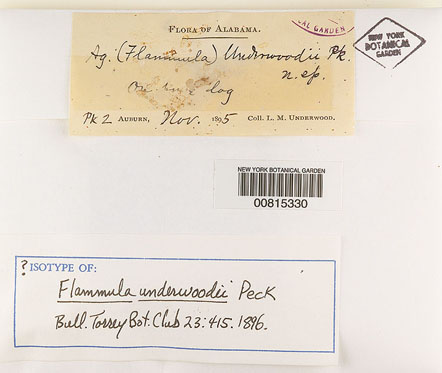 FLORA OF ALABAMA.
Ag. (Flammula) Underwoodii Pk.
n. sp.
On log
Pk 2 AUBURN, Nov. 1895 COLL. L. M. UNDERWOOD.
GARDEN
NEW YORK
BOTANICAL
GARDEN
NEW YORK BOTANICAL GARDEN
00815330
? ISOTYPE OF:
Flammula underwoodii Peck
Bull. Torrey Bot. Club 23:415. 1896.